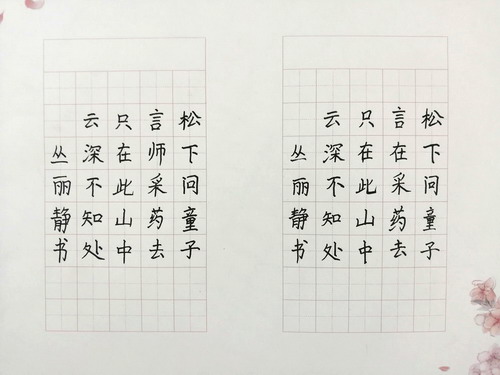 松下问童子
言在采药去
只在此山中
云深不知处
丛丽静书
松下问童子
言师采药去
只在此山中
云深不知处
丛丽静书